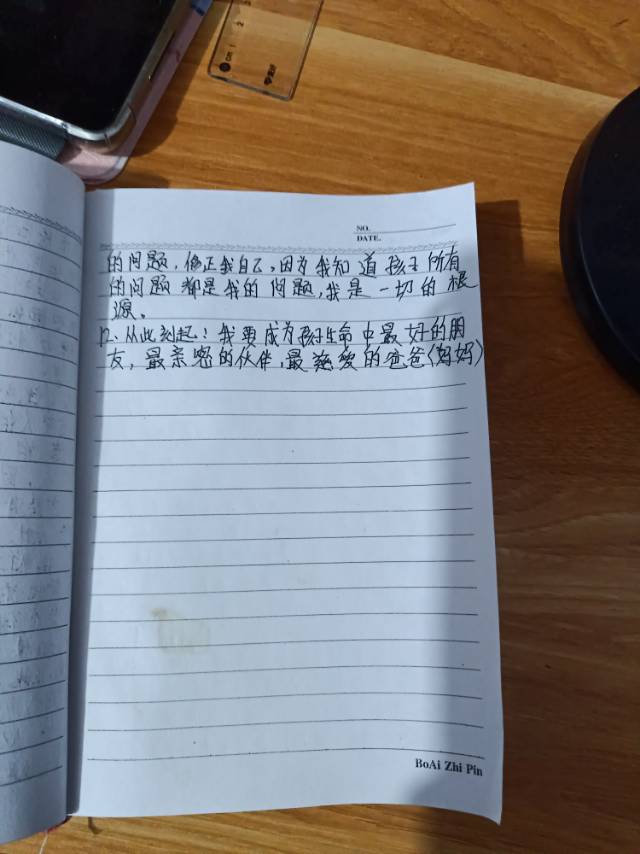 NO.
DATE.
的问题，修正我自己，因为我知道孩子所有
的问题都是我的问题，我是一切的根
源。
12.从此刻起：我要成为孩子生命中最好的朋
友，最亲密的伙伴，最慈爱的爸爸（妈妈）
BoAi Zhi Pin